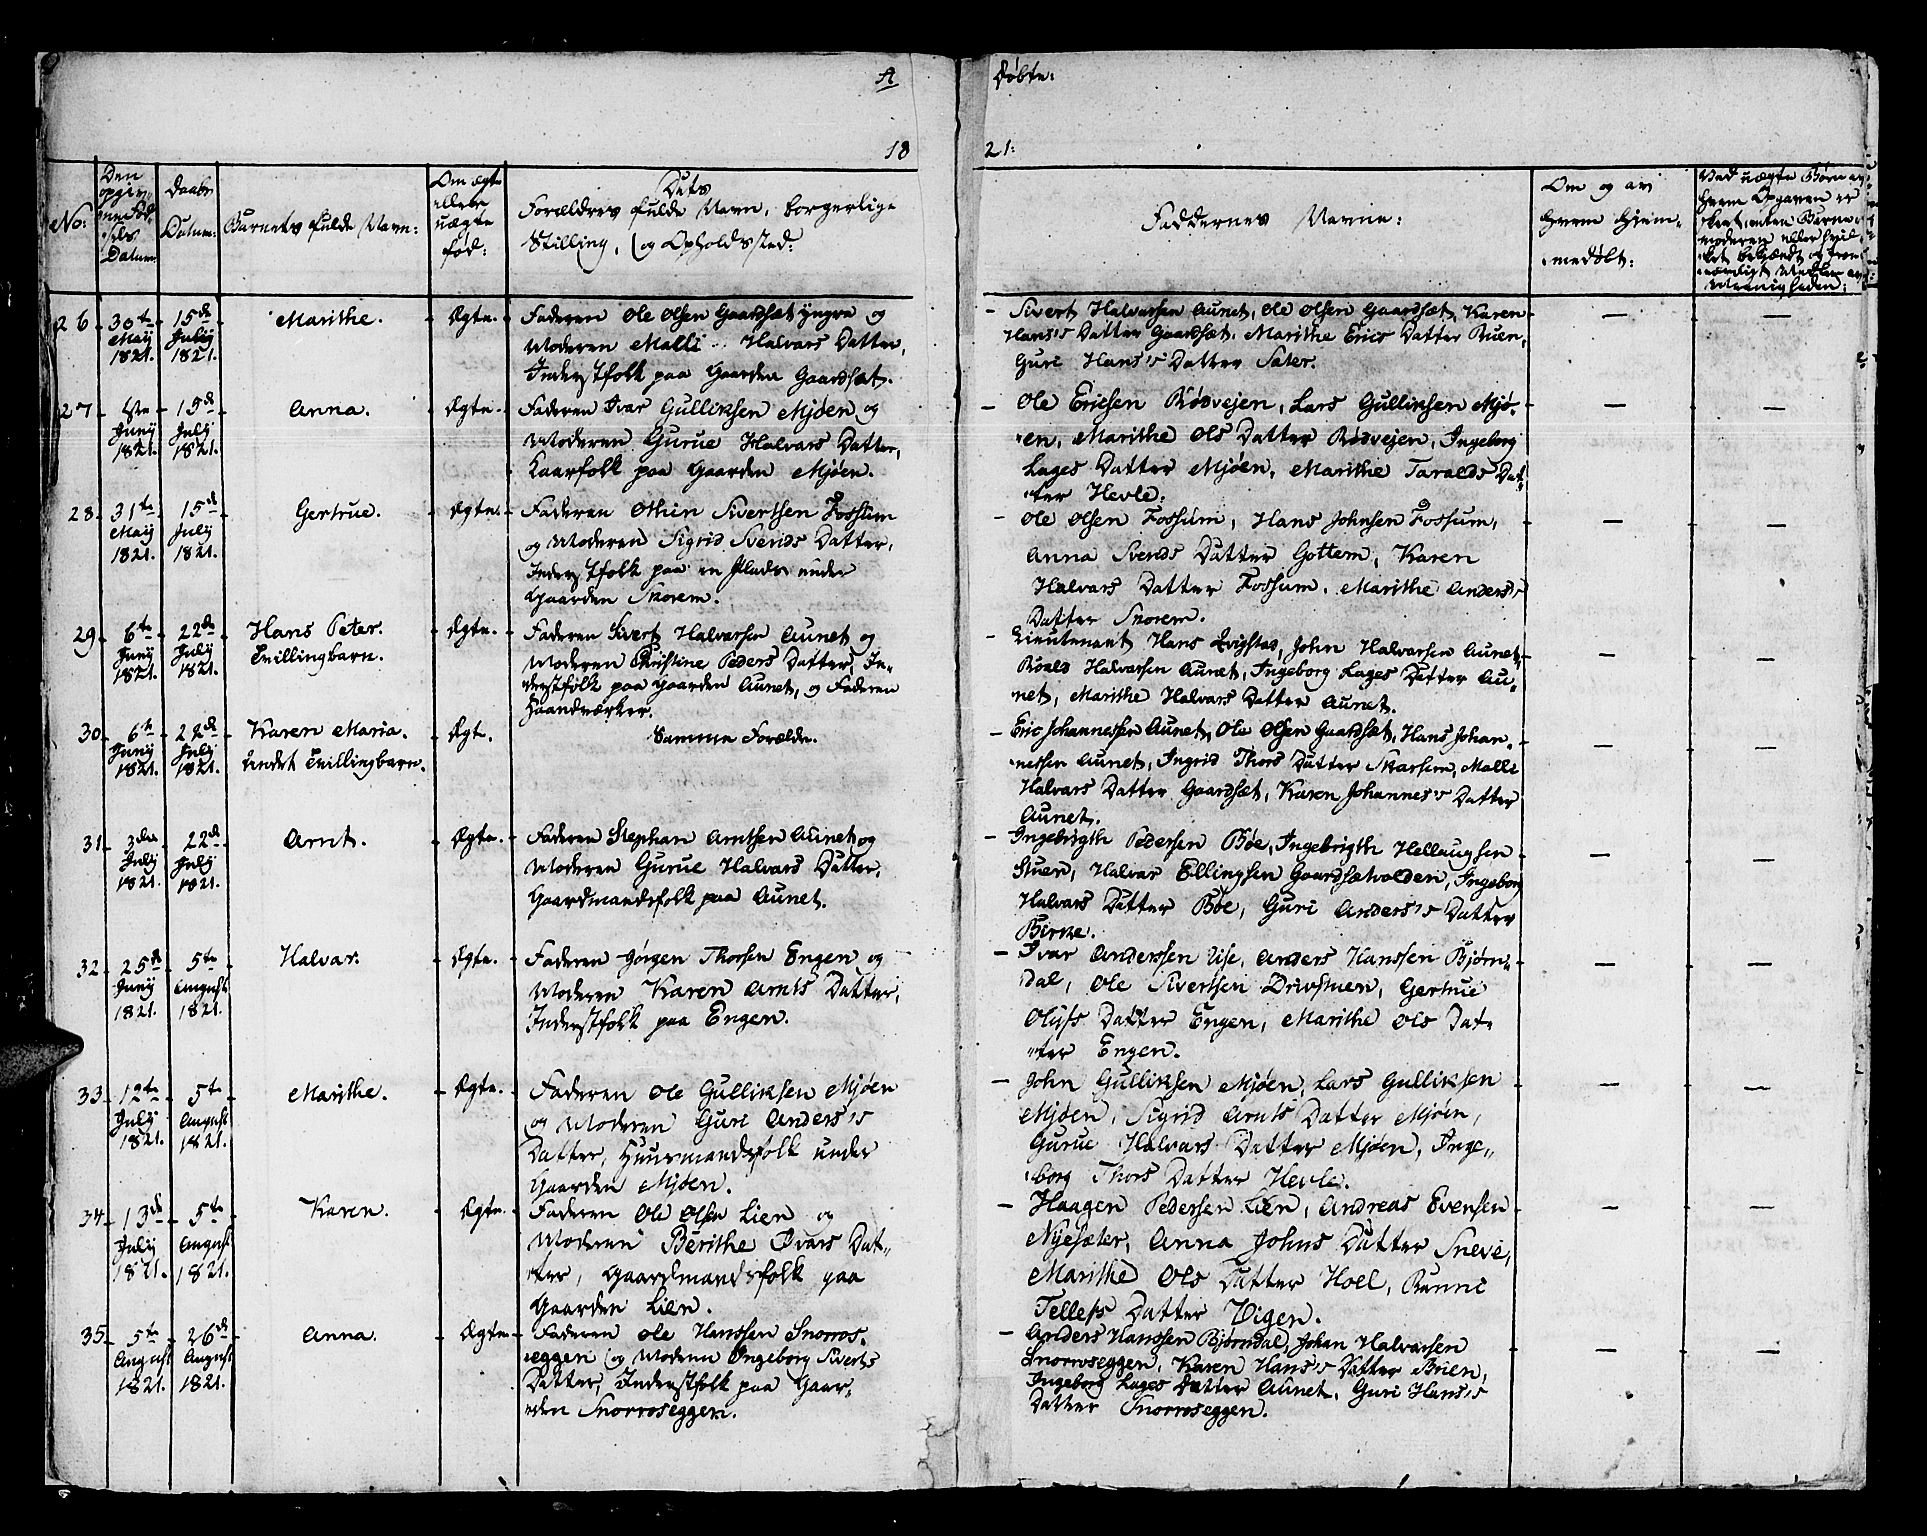 A
Døbte:
18
21:
No:
Den opgivne Fødsels Datum
Daabs Datum:
Barnets fulde Navn:
Om ægte ellere uægte fød:
Dets Forældres fulde Navn, borgerlige Stilling, og Opholdssted:
Faddernes Navne:
Om og av hvem Hjemmedøbt:
26
30te May 1821.
15de July 1821.
Marithe.
Ægte.
Faderen Ole Olsen Gaardsæt yngre og
Moderen Malli Halvars Datter,
Inderstfolk paa Gaarden Gaardsæt.
Sivert Halvarsen Aunet, Ole Olsen Gaardsæt, Karen
Hans's Datter Gaardsæt, Marithe Erics Datter Buen,
Guri Hans's Datter Sæter.
27
Juny 1821.
15de July 1821.
Anna.
Ægte.
Faderen Ivar Gulliksen Mjøen og
Moderen Gurue Halvars Datter,
Kaarfolk paa Gaarden Mjøen.
Ole Ericsen Røsvejen, Lars Gulliksen Mjø-
en, Marithe Ols Datter Røsvejen, Ingeborg
Lages Datter Mjøen, Marithe Taralds Dat-
ter Hevle.
28
31te May 1821.
15de July 1821.
Gertrue.
Ægte.
Faderen Othin Sivertsen Fossum
og Moderen Sigrid Svends Datter,
Inderstfolk paa en Plads under
Gaarden Snorem.
Ole Olsen Fossum, Hans Johnsen Fossum,
Anna Svends Datter Gottem, Karen
Halvars Datter Fossum, Marithe Anders's
Datter Snorem.
29
6te Juny 1821.
22de July 1821.
Hans Peter.
Tvillingbarn.
Ægte.
Faderen Sivert Halvarsen Aunet og
Moderen Christine Peders Datter, In-
derstfolk paa Gaarden Aunet, og Faderen
Haandværker.
Lieutenant Hans Qvigstad, John Halvarsen Aunet,
Roald Halvarsen Aunet, Ingeborg Lages Datter Au-
net, Marithe Halvars Datter Aunet.
30
6te Juny 1821.
22de July 1821.
Karen Maria.
Andet Tvillingbarn.
Ægt.
Samme Forældre.
Eric Johannessen Aunet, Ole Olsen Gaardsæt, Hans Johan-
nessen Aunet, Ingrid Thors Datter Skarsem, Malli
Halvars Datter Gaardsæt, Karen Johannes's Datter
Aunet.
31
3die July 1821.
22de July 1821.
Arnt.
Ægte.
Faderen Stephan Arntsen Aunet og
Moderen Gurue Halvars Datter,
Gaardmandsfolk paa Aunet.
Ingebrigth Pedersen Bøe, Ingebrigth Hellaugsen
Stuen, Halvar Ellingsen Gaardsætvolden, Ingeborg
Halvars Datter Bøe, Guri Anders's Datter
32
25de Juny 1821.
5te August 1821.
Halvar.
Ægte.
Faderen Jørgen Thorsen Engen og
Moderen Karen Arnts Datter,
Inderstfolk paa Engen.
Ivar Anderssen Vise, Anders Hanssen Bjørn-
dal, Ole Sivertsen Drivstuen, Gertrue
Olufs Datter Engen, Marithe Ols Dat-
ter Engen.
33
12te July 1821.
5te August 1821.
Marithe.
Ægte.
Faderen Ole Gulliksen Mjøen
og Moderen Guri Anders's
Datter, Huusmandsfolk under
Gaarden Mjøen.
John Gulliksen Mjøen, Lars Gulliksen
Mjøen, Sigrid Arnts Datter Mjøen,
Gurue Halvars Datter Mjøen, Inge-
borg Thors Datter Hevle.
34
13de July 1821.
5te August 1821.
Karen.
Ægte.
Faderen Ole Olsen Lien og
Moderen Berithe Ivars Dat-
ter, Gaardmandsfolk paa
Gaarden Lien.
Haagen Pedersen Lien, Andreas Evensen
Nyesæter, Anna Johns Datter Sneve,
Marithe Ols Datter Hoel, Rønni
Tellefs Datter Vigen.
35
5te August 1821.
26de August 1821.
Anna.
Ægte.
Faderen Ole Hanssen Snoros-
eggen og Moderen Ingeborg Siverts
Datter, Inderstfolk paa Gaar-
den Snoroseggen.
Anders Hanssen Bjørndal, Johan Halvarsen
Snoroseggen, Karen Hans's Datter Brien,
Ingeborg Lages Datter Aunet, Guri Hans's
Datter Snoroseggen.